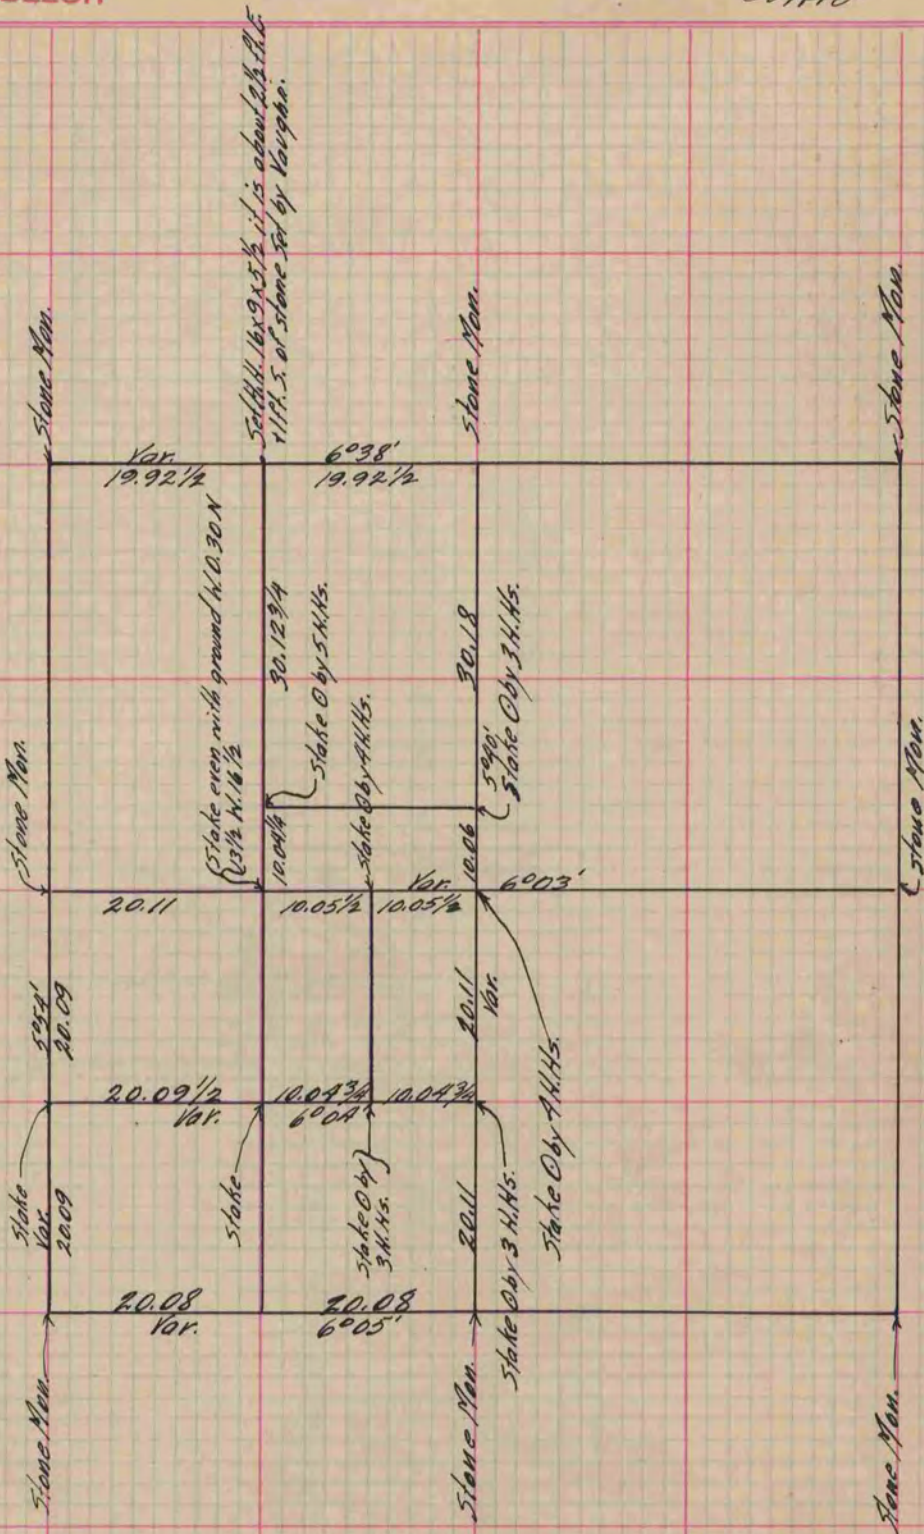 Stone Mon.
Set H.H. 16x9x5½ it is about 2½ ft. E.
+1 ft. S. of stone set by Vaughn.
Stone Mon.
Stone Mon.
Var.
19.92½
6°38'
19.92½
Stake even with ground W. 0.30 N
13½ W. 16½
30.12¾
Stake O by 5 H.Hs.
Stake O by 4 H.Hs.
30.18
5°40'
Stake O by 3 H.Hs.
Stone Mon.
10.04¼
10.06
20.11
10.05½
Var.
10.05½
6°03'
Stone Mon.
5°54'
20.09
20.11
Var.
20.09½
Var.
10.04¾
6°04'
10.04¾
Stake
Var.
20.09
Stake
Stake O by
3 H.Hs.
20.11
Stake O by 3 H.Hs.
Stake O by 4 H.Hs.
20.08
Var.
20.08
6°05'
Stone Mon.
Stone Mon.
Stone Mon.